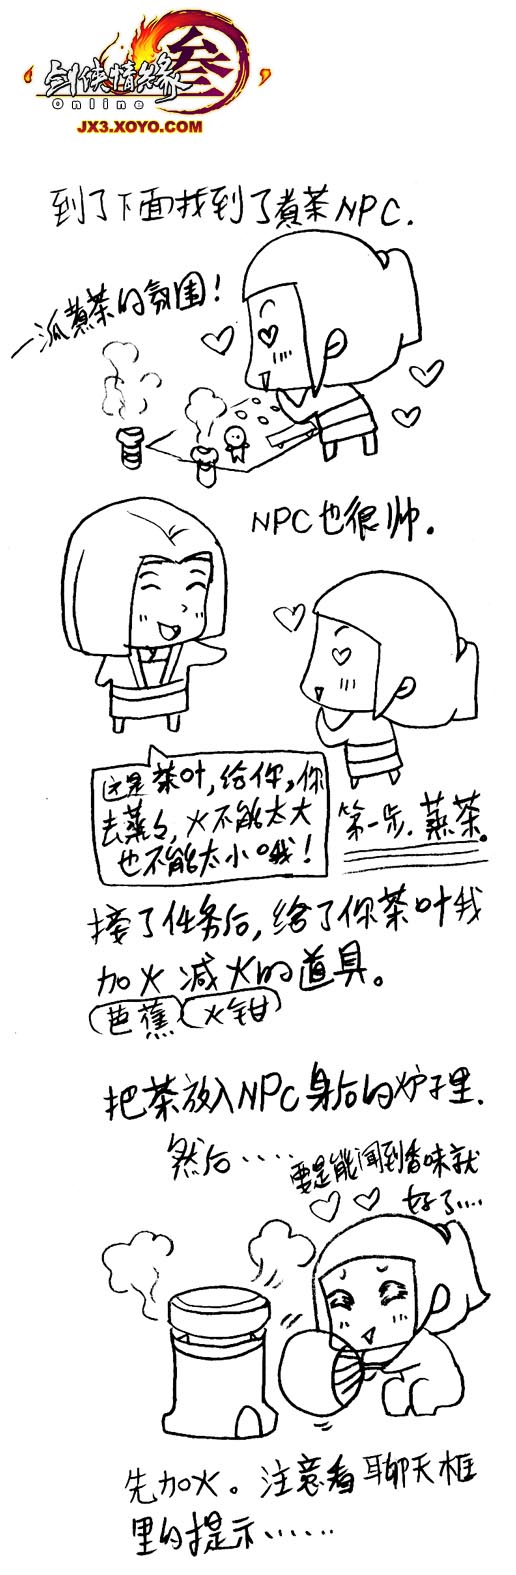 剑侠情缘 叁
Online
JX3.XOYO.COM
到了下面找到了煮茶NPC.
一派煮茶的氛围!
NPC也很帅.
这是茶叶,给你,你
去蒸々,火不能太大
也不能太小哦!
第一步.蒸茶。
接了任务后,给了你茶叶我
加火 减火的道具。
芭蕉 火钳
把茶放入NPC身后的炉子里.
然后.....
要是能闻到香味就
好了....
先加火。注意看聊天框
里的提示......